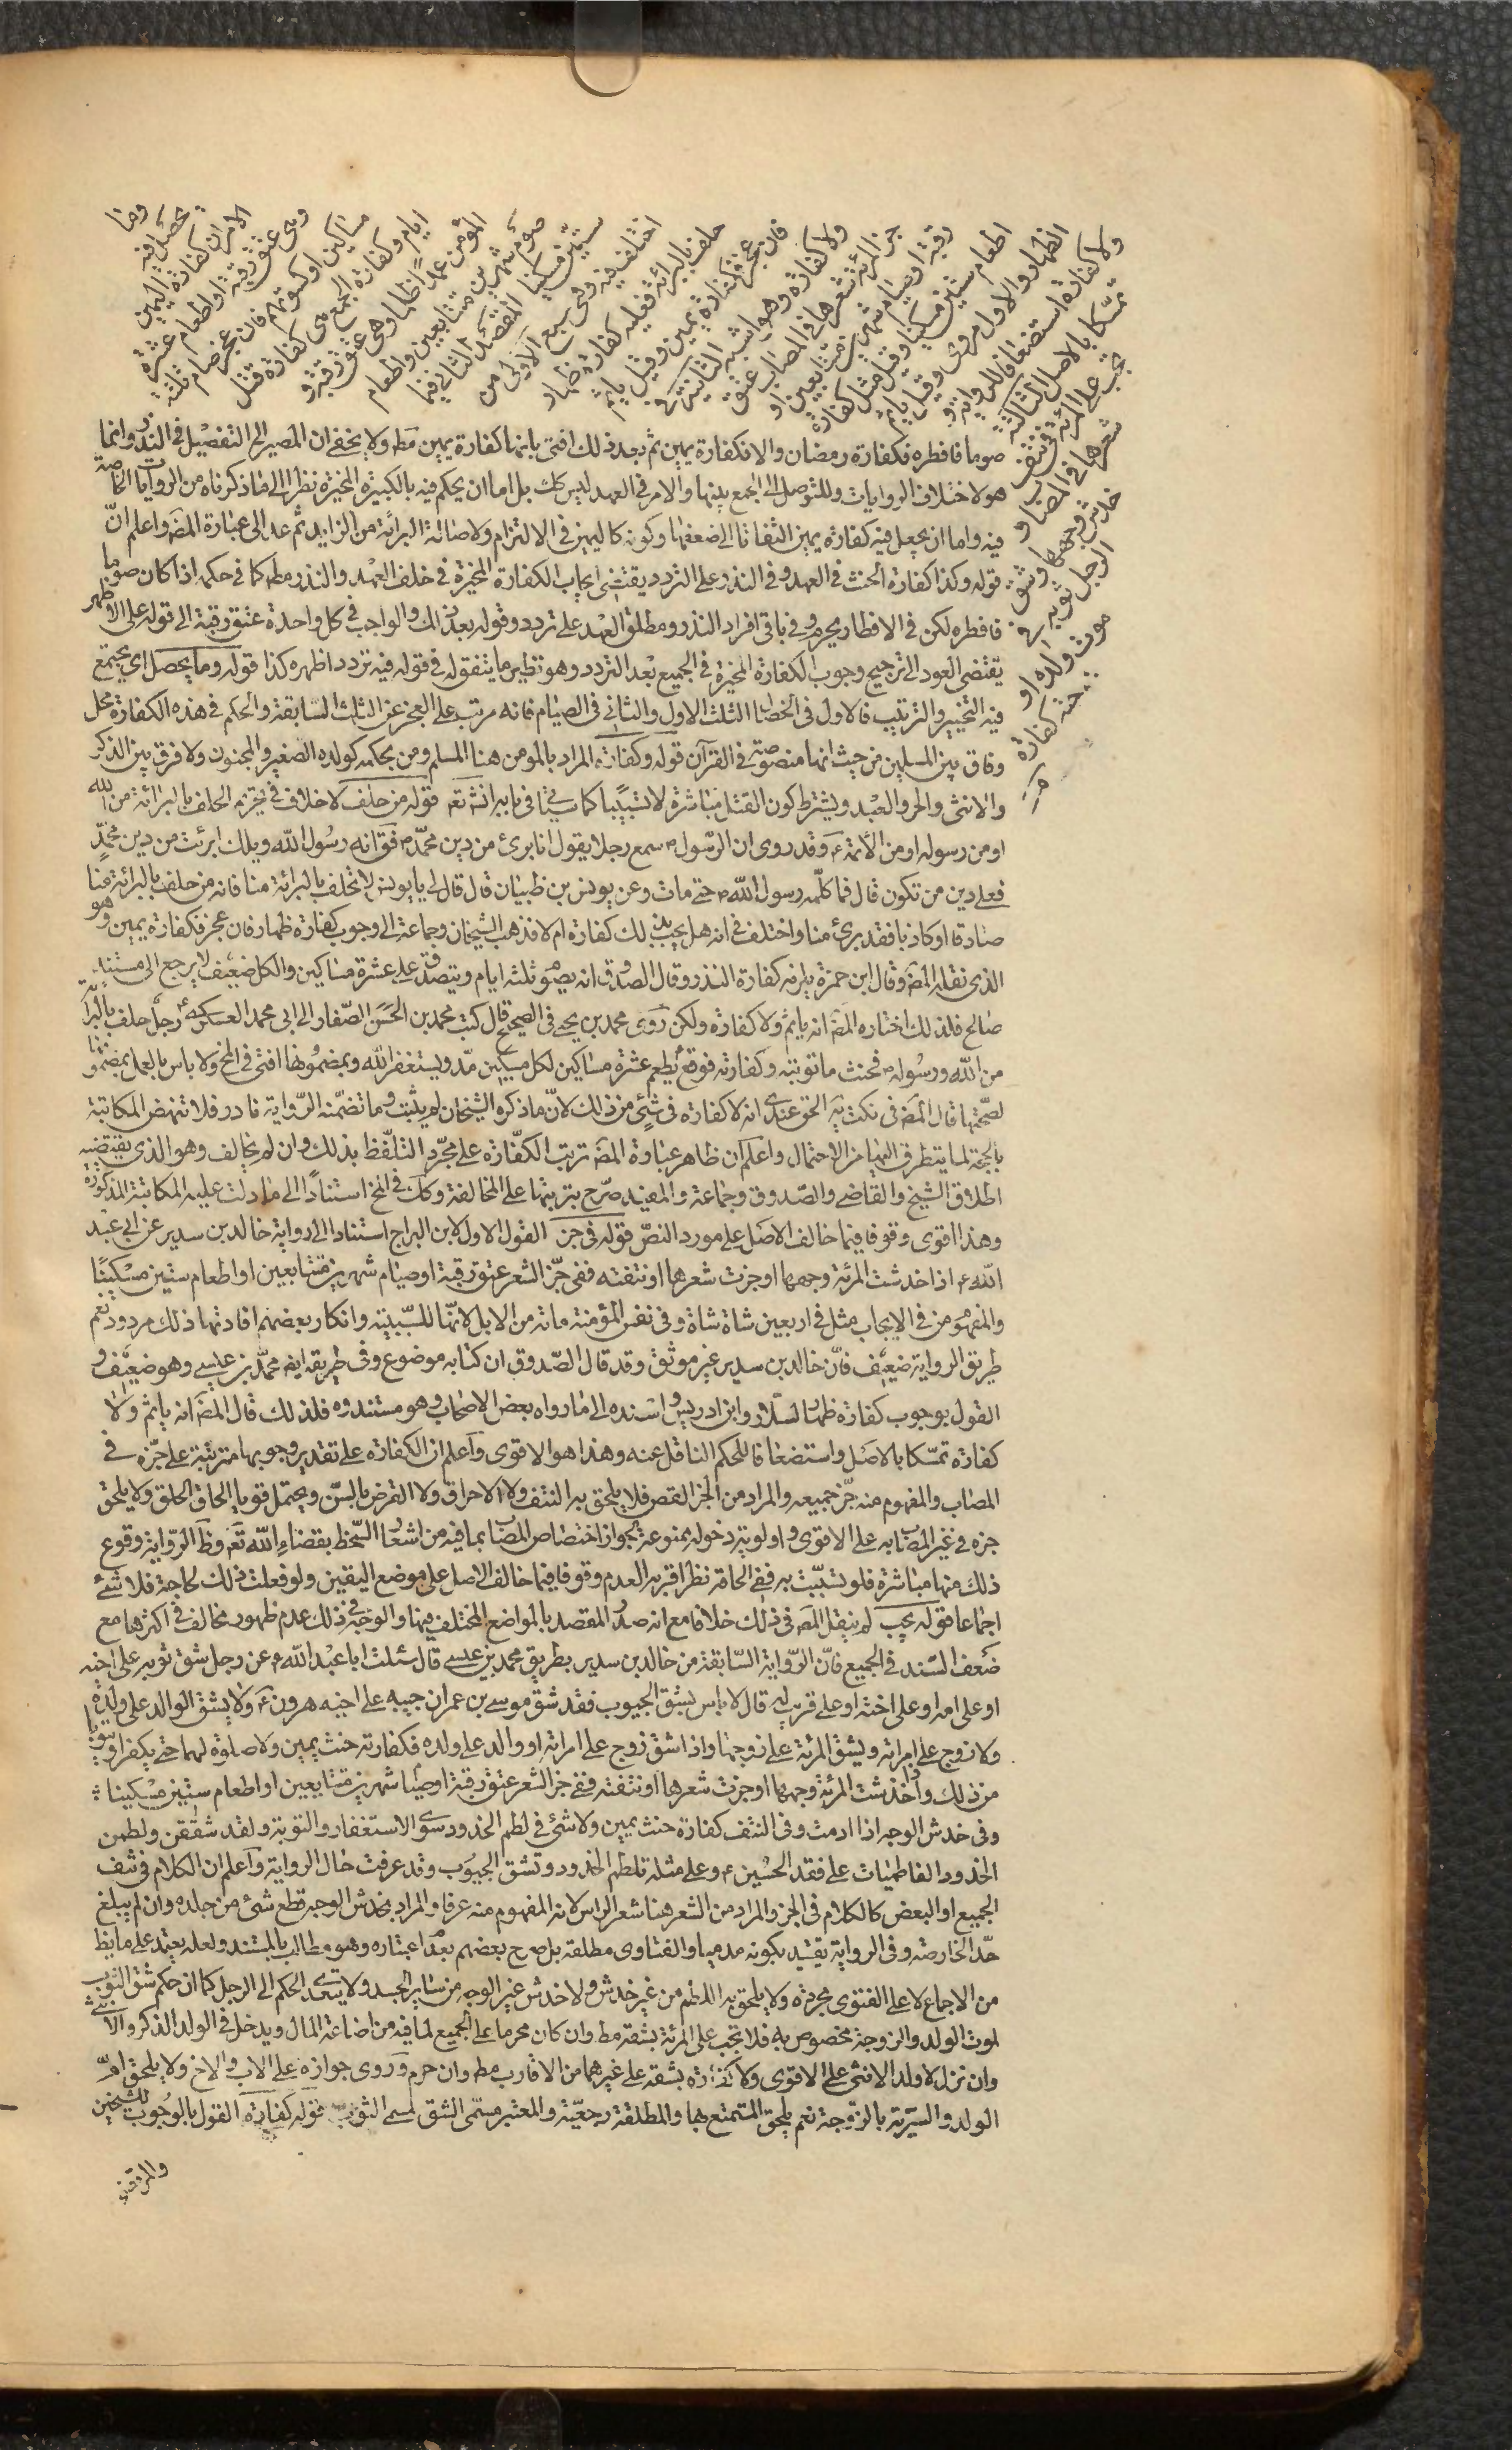 وما
يحصل فيه
الامران كفارة اليمين
وهى عتق رقبة او اطعام عشرة
مساكين او كسوتهم فان عجز صام ثلثة
ايام وكفارة الجمع هى كفارة قتل
المؤمن عمدا ظلما وهى عتق رقبة و
صوم شهرين متتابعين واطعام
ستين مسكينا المقصد الثانى فيما
اختلف فيه وهى سبع الاولى من
حلف بالبرائة فعليه كفارة ظهار
فان عجز فكفارة يمين وقيل ياثم
ولا كفارة وهو اشبه الثانية فى
جز المرئة شعرها فى المصاب عتق
رقبة او صيام شهرين متتابعين او
اطعام ستين مسكينا وقيل مثل كفارة
الظهار والاول مروى وقيل ياثم
ولا كفارة استضعافا للرواية و
تمسكا بالاصل الثالثة
تجب على المرئة فى نتف
شعرها فى المصاب و
خدش وجهها وشق
الرجل ثوبه فى
موت ولده او
زوجته كفارة
صوما فافطره فكفارة رمضان والا فكفارة يمين ثم بعد ذلك افتى بانها كفارة يمين مط ولا يخفى ان المصير الى التفصيل فى النذر وانما
هو لاختلاف الروايات وللتوصل الى الجمع بينها والامر فى العهد ليس كك بل اما ان يحكم فيه بالكبيرة المخيرة نظرا الى ما ذكرناه من الروايات الخاصة
فيه واما ان يجعل فيه كفارة يمين التفاتا الى ضعفها وكونه كاليمين فى الالتزام ولاصالة البرائة من الزايد ثم عد الى عبارة المصَ واعلم انّ
قوله وكذا كفارة الحنث فى العهد وفى النذر على التردد يقتضى ايجاب الكفارة المخيرة فى خلف العهد والنذر مطلقا كما فى حكمه اذا كان صوما
فافطره لكن فى الافطار يحرم وفى باقى افراد النذر ومطلق العهد على تردد وقوله بعد ذلك والواجب فى كل واحدة عتق رقبة الى قوله على الاظهر
يقتضى العود الى ترجيح وجوب الكفارة المخيرة فى الجميع بعد التردد وهو نظير ما يتفق له فى قوله فيه تردد اظهره كذا قوله وما يحصل اى يجتمع
فيه التخيير والترتيب فالاول فى الخصال الثلث الاول والثانى فى الصيام فانه مرتب على العجز عن الثلث السابقة والحكم فى هذه الكفارة محل
وفاق بين المسلمين من حيث انها منصوصة فى القرآن قوله وكفارة المراد بالمؤمن هنا المسلم ومن بحكمه كولده الصغير والمجنون ولا فرق بين الذكر
والانثى والحر والعبد ويشترط كون القتل مباشرة لا تسبيبا كما سياتى فى بابه انشَ تعَ قوله من حلف لا خلاف فى تحريم الحلف بالبرائة من الله
او من رسوله او من الأئمة ءَ وقد روى ان الرّسول ص سمع رجلا يقول انا برئ من دين محمّد ص فقَ له رسول الله ويلك ابرئت من دين محمّدٍ
فعلى دين من تكون قال فما كلّمه رسول الله ص حتى مات وعن يونس بن ظبيان قال قال لى يا يونس لا تحلف بالبرائة منا فانه من حلف بالبرائة منا
صادقا او كاذبا فقد برئ منا واختلف فى انه هل يجب بذلك كفارة ام لا فذهب الشيخان وجماعة الى وجوب كفارة ظهار فان عجز فكفارة يمين وهو
الذى نقله المصَ وقال ابن حمزة يلزمه كفارة النذر وقال الصدوق انه يصوم ثلثه ايام ويتصدق على عشرة مساكين والكل ضعيف لا يرجع الى مستند
صالح فلذلك اختاره المصَ انه ياثم ولا كفارة ولكن روى محمد بن يحيى فى الصحيح قال كتب محمد بن الحسن الصّفار الى ابى محمد العسكرى ء رجل حلف بالبرائة
من الله ورسوله ص فحنث ما توبته وكفارته فوقع ء يطعم عشرة مساكين لكل مسكين مدّ ويستغفر الله وبمضمونها افتى فى المخ ولا باس بالعمل بمضمونها
لصحّتها قال المصَ فى نكت يَه الحق عندى انه لا كفارة فى شئ من ذلك لانّ ما ذكره الشيخان لم يثبت وما تضمّنه الرّواية نادر فلا تنهض المكاتبة
بالحجة لما يتطرق اليها من الاحتمال واعلم ان ظاهر عبارة المصَ ترتب الكفّارة على مجرّد التلفّظ بذلك وان لم يخالف وهو الذى يقتضيه
اطلاق الشيخ والقاضى والصّدوق وجماعة والمفيد صرّح بترتبها على المخالفة وكك فى المخ استناداً الى ما دلّت عليه المكاتبة المذكورة
وهذا اقوى وقوفا فيما خالف الاصل على مورد النصّ قوله فى جز القول الاول لابن البراج استنادا الى رواية خالد بن سدير عن ابى عبد
الله ء اذا خدشت المرئة وجهها او جزت شعرها او نتفته ففى جزّ الشعر عتق رقبة او صيام شهرين متتابعين او اطعام ستين مسكينًا
والمفهوم من فى الايجاب مثل فى اربعين شاة شاة وفى نفس المؤمنة مائة من الابل لانّها للسّببيّة وانكار بعضهم افادتها ذلك مردود نعم
طريق الرواية ضعيف فانّ خالد بن سدير غير موثق وقد قال الصّدوق ان كتابه موضوع وفى طريقه ايضَ محمّد بن عيسى وهو ضعيف و
القول بوجوب كفارة ظهار لسلّار وابن ادريس واسنده الى ما رواه بعض الاصحاب وهو مستندوه فلذلك قال المصَ انه ياثم ولا
كفارة تمسّكا بالاصل واستضعافا للحكم الناقل عنه وهذا هو الاقوى واعلم ان الكفارة على تقدير وجوبها مترتبة على جزّه فى
المصاب والمفهوم منه جزّ جميعه والمراد من الجز القص فلا يلحق به النتف ولا الاحراق ولا القرض بالسّن ويحتمل قويا الحاق الحلق ولا يلحق
جزه فى غير المصاب به على الاقوى واولوية دخوله ممنوعة لجواز اختصاص المصاب بما فيه من اشعار السّخط بقضاء الله تعَ وظَ الرّواية وقوع
ذلك منها مباشرة فلو تسبّبت به ففى الحاقه نظر اقربه العدم وقوفا فيما خالف الاصل على موضع اليقين ولو فعلت ذلك لحاجة فلا شئ
اجماعا قوله يجب لم ينقل المصَ فى ذلك خلافا مع انه صدر المقصد بالمواضع المختلف فيها والوجه فى ذلك عدم ظهور مخالف فى اكثرها مع
ضعف السّند فى الجميع فانّ الرّواية السّابقة من خالد بن سدير بطريق محمد بن عيسى قال سئلت ابا عبد الله ء عن رجل شق ثوبه على ابيه
او على امه او على اخته او على قريب له قال لا باس بشق الجيوب فقد شق موسى بن عمران جيبه على اخيه هرون ءَ ولا يشق الوالد على ولده
ولا زوج على امراته ويشق المرئة على زوجها واذا شق زوج على امراته او والد على ولده فكفارته حنث يمين ولا صلوة لهما حتى يكفرا ويتوبا
من ذلك واذا خدشت المرئة وجهها او جزت شعرها او نتفته ففى جز الشعر عتق رقبة او صيام شهرين متتابعين او اطعام ستين مسكينا
وفى خدش الوجه اذا ادمت وفى النتف كفارة حنث يمين ولا شئ فى لطم الخدود سوى الاستغفار والتوبة ولقد شققن ولطمن
الخدود الفاطميات على فقد الحسين ء وعلى مثله تلطم الخدود وتشق الجيوب وقد عرفت حال الرواية واعلم ان الكلام فى نتف
الجميع او البعض كالكلام فى الجز والمراد من الشعر هنا شعر الراس لانه المفهوم منه عرفا والمراد بخدش الوجه قطع شئ من جلده وان لم يبلغ
حدّ الخارصة وفى الرواية يقتيد بكونه مدميا والفتاوى مطلقة بل صرح بعضهم بعدم اعتباره وهو مطالب بالمستند ولعله يعتمد على ما يظ
من الاجماع لا على الفتوى مجردة ولا يلحق به اللطم من غير خدش ولا خدش غير الوجه من ساير الجسد ولا يتعدى الحكم الى الرجل كما ان حكم شق الثوب
لموت الولد والزوجة مخصوص به فلا تجب على المرئة بشقه مط وان كان محرما على الجميع لما فيه من اضاعة المال ويدخل فى الولد الذكر والانثى
وان نزل لا ولد الانثى على الاقوى ولا كفارة بشقه على غيرهما من الاقارب مط وان حرم وروى جوازه على الاب والاخ ولا يلحق امّ
الولد والسرّية بالزّوجة نعم يلحق المتمتع بها والمطلقة رجعيّة والمعتبر مسمّى الشق لمسمى الثوب قوله كفارة القول بالوجوب للشيخين
والمرتضى